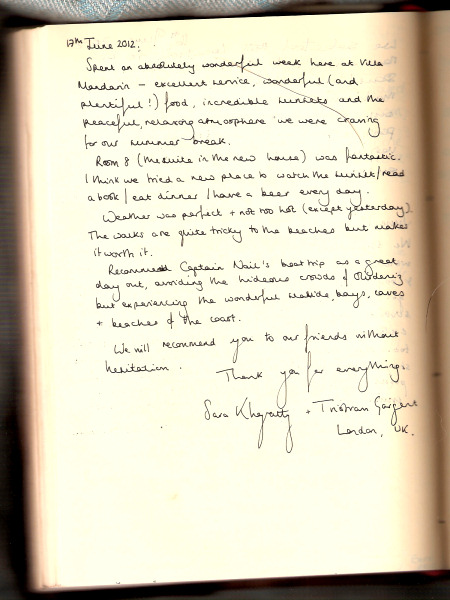 17th June 2012.
Spent an absolutely wonderful week here at Villa
Mandarin – excellent service, wonderful (and
plentiful!) food, incredible sunsets and the
peaceful, relaxing atmosphere we were craving
for our summer break.
Room 8 (the suite in the new house) was fantastic.
I think we tried a new place to watch the sunset / read
a book / eat dinner / have a beer every day.
Weather was perfect + not too hot (except yesterday).
The walks are quite tricky to the beaches but makes
it worth it.
Recommend Captain Nail's boat trip as a great
day out, avoiding the hideous crowds of Oludeniz
but experiencing the wonderful bays, caves
+ beaches of the coast.
We will recommend you to our friends without
hesitation.
Thank you for everything,
Sara + Tristram Sargent
London, UK.